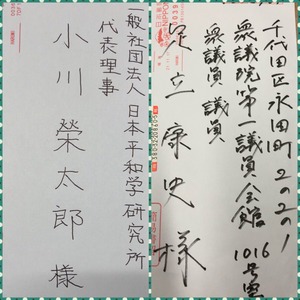 一般社団法人 日本平和学研究所
代表理事
小川 榮太郎 様
千代田区永田町2の2の1
衆議院第一議員会館 1016号室
衆議員 議員
足立康史様
NIPPON